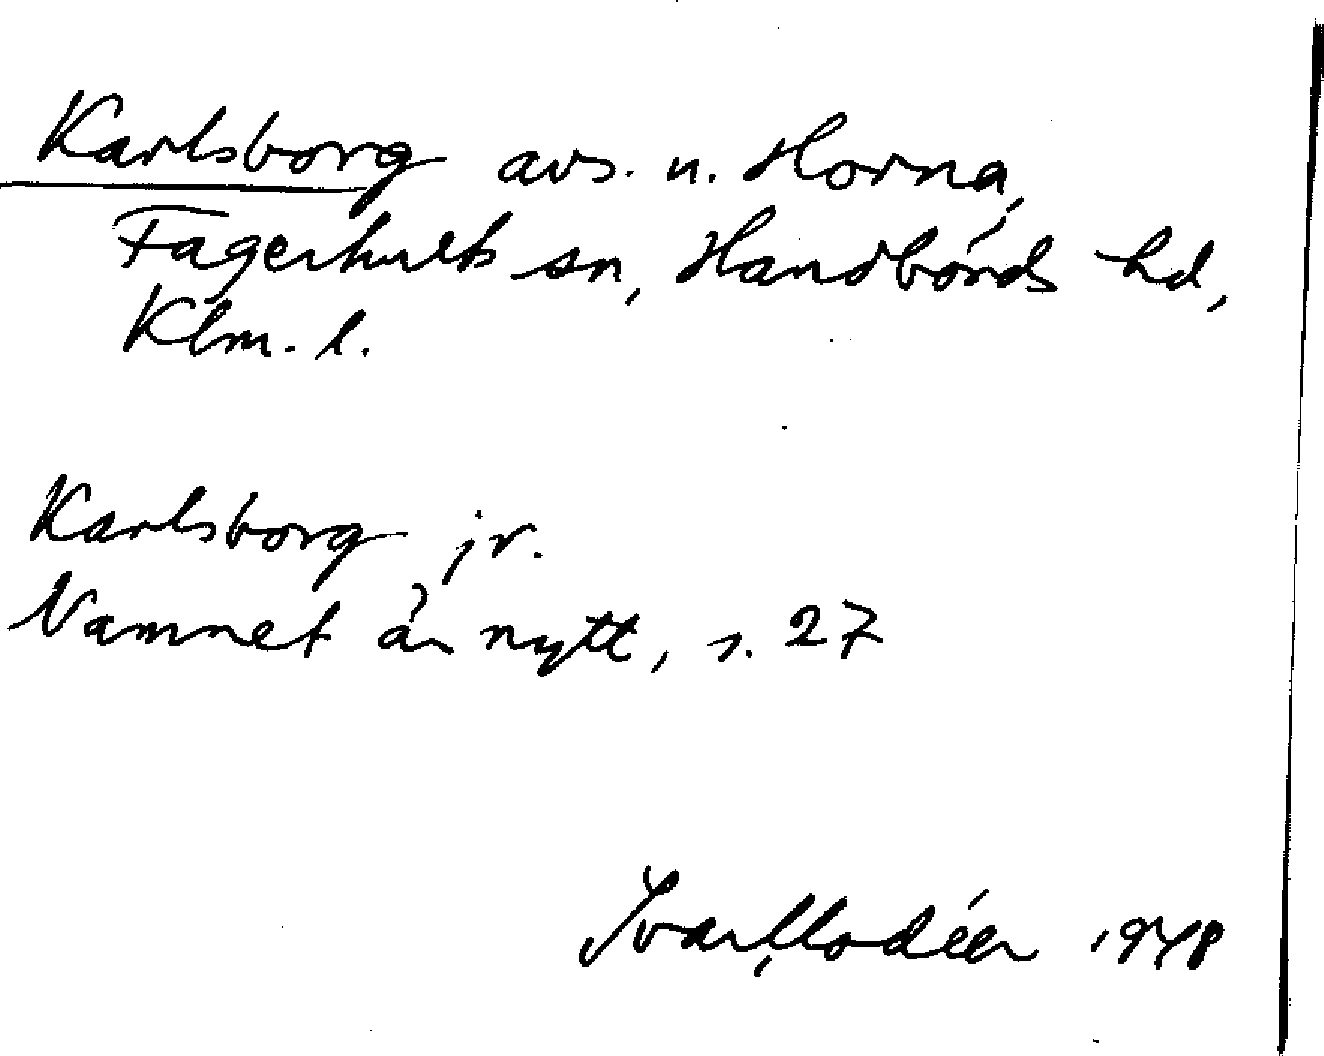 Karlsborg avs. u. Horna,
Fagerhults sn, Handbörds hd,
Klm. l.
Karlsborg jr.
Namnet är nytt, s. 27
Ivar Modéer 1948